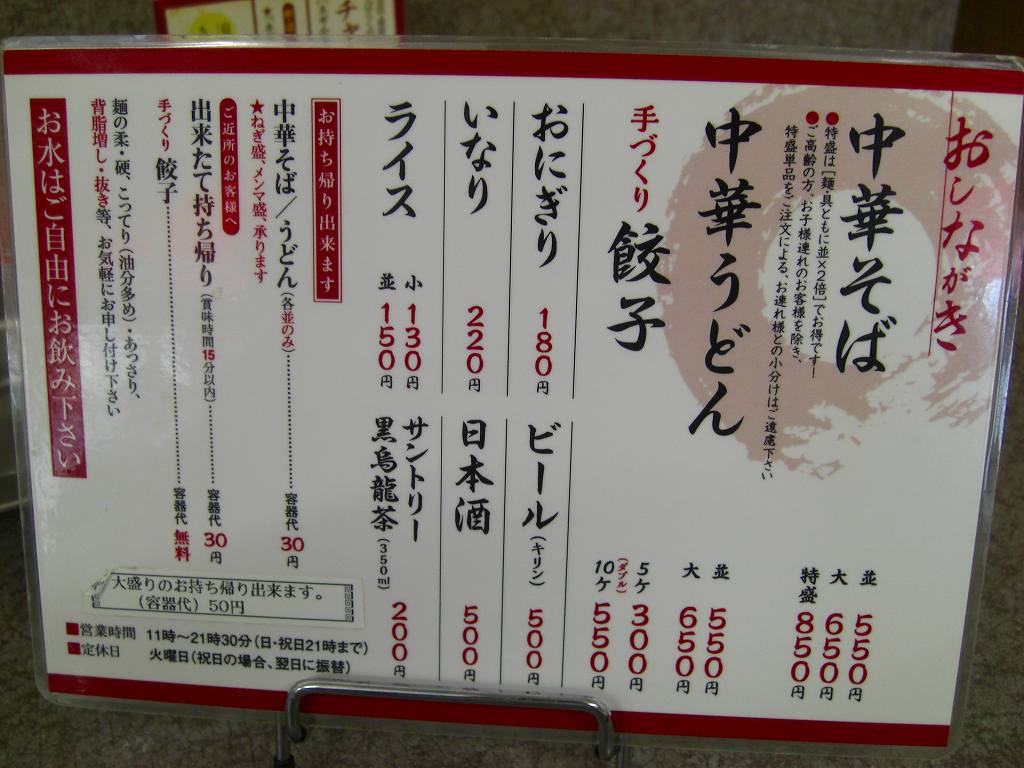 おしながき
中華そば
並 550円
大 650円
特盛 850円
●特盛は[麺・具ともに並×2倍]でお得です!
●ご高齢の方、お子様連れのお客様を除き、
特盛単品をご注文による、お連れ様との小分けはご遠慮下さい
中華うどん
並 550円
大 650円
手づくり 餃子
5ケ 300円
(ダブル)
10ケ 550円
おにぎり 180円
ビール(キリン) 500円
いなり 220円
日本酒 500円
ライス
小 130円
並 150円
サントリー
黒烏龍茶(350ml) 200円
お持ち帰り出来ます
中華そば/うどん(各並のみ) 容器代 30円
★ねぎ盛、メンマ盛、承ります
ご近所のお客様へ
出来たて持ち帰り(賞味時間15分以内) 容器代 30円
手づくり 餃子 容器代 無料
麺の柔・硬、こってり(油分多め)・あっさり、
背脂増し・抜き等、お気軽にお申し付け下さい
お水はご自由にお飲み下さい
大盛りのお持ち帰り出来ます。
(容器代)50円
■営業時間 11時〜21時30分(日・祝日21時まで)
■定休日 火曜日(祝日の場合、翌日に振替)